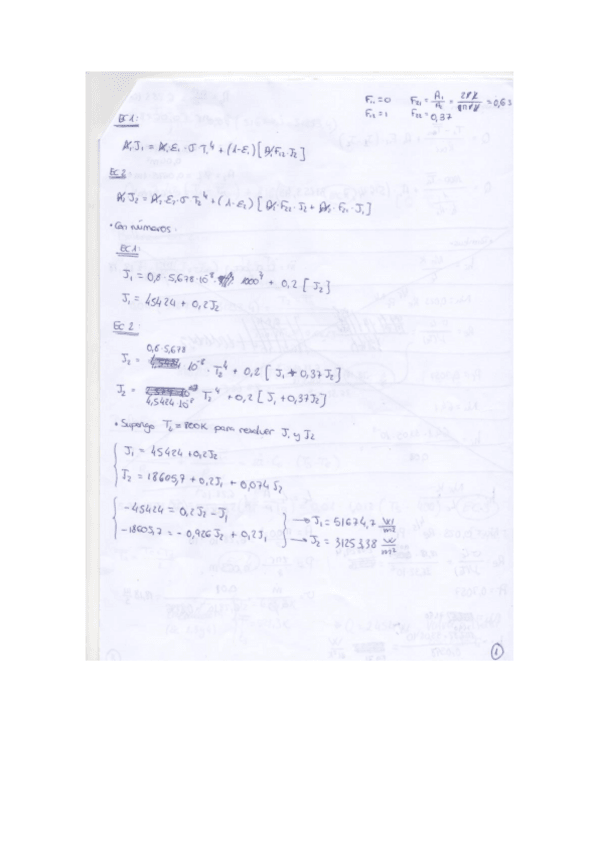 F₁₁ = 0 F₂₁ = A₁/A₂ = = 0,63
F₁₂ = 1 F₂₂ = 0,37
EC 1:
A₁J₁ = A₁·ε₁·σ T₁⁴ + (1-ε₁) [A₁F₁₂·J₂]
EC 2
A₂J₂ = A₂·ε₂·σ T₂⁴ + (1-ε₂) [A₂·F₂₂·J₂ + A₂·F₂₁·J₁]
• Con números:
EC 1:
J₁ = 0,8·5,678·10⁻⁸· 1000⁴ + 0,2 [J₂]
J₁ = 45424 + 0,2J₂
EC 2:
0,8·5,678
J₂ = ·10⁻⁸·T₂⁴ + 0,2 [J₁ + 0,37J₂]
J₂ = T₂⁴ + 0,2 [J₁ + 0,37J₂]
4,5424·10⁻⁸
• Supongo T₂ = 800K para resolver J₁ y J₂
J₁ = 45424 + 0,2J₂
J₂ = 18605,7 + 0,2J₁ + 0,074J₂
-45424 = 0,2J₂ - J₁ → J₁ = 51674,7 W/m²
-18605,7 = -0,926J₂ + 0,2J₁ → J₂ = 31253,38 W/m²
1